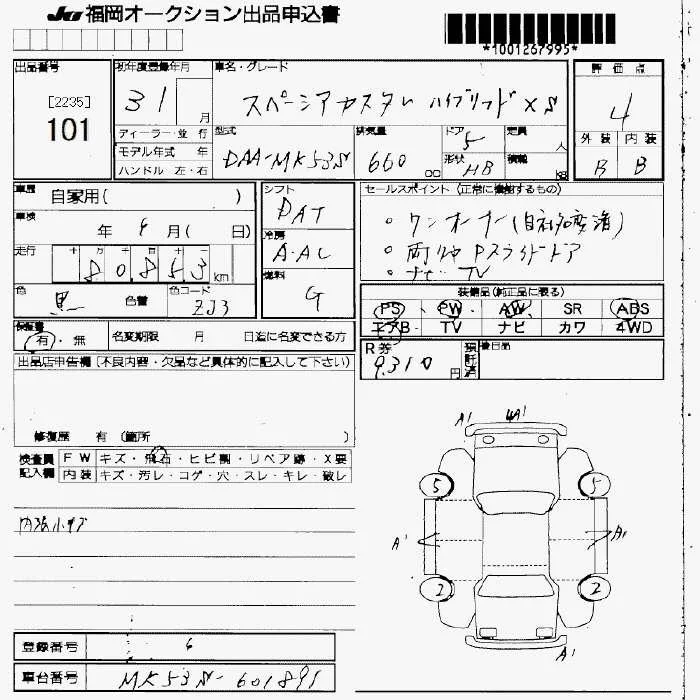 JU 福岡オークション出品申込書
*1001267995*
出品番号
[2235]
101
初年度登録年月
31 月
ディーラー・並行
モデル年式 年
ハンドル 左・右
車名・グレード
スペーシアカスタム ハイブリッド XS
型式
DAA-MK53S
排気量
660 CC
ドア
5
形状
HB
定員
人
積載
kg
評価点
4
外装 内装
B B
車歴 自家用( )
車検 年 月( 日)
走行
十 万 千 百 十 一
80,853 km
色
黒 色替
色コード
ZJ3
シフト
DAT
冷房
AAC
燃料
G
セールスポイント (正常に機能するもの)
。ワンオーナー(自社名変済)
。両側Pスライドドア
。ナビ TV
装備品(純正品に限る)
PS PW AW SR ABS
エアB TV ナビ カワ 4WD
保証書
有・無
名変期限 月 日迄に名変できる方
R券
9,310 円
預託済
後日品
出品店申告欄 (不良内容・欠品など具体的に記入して下さい)
修復歴 有 (箇所 )
検査員
記入欄
FW キズ・飛石・ヒビ割・リペア跡・X要
内装 キズ・汚レ・コゲ・穴・スレ・キレ・破レ
内張小キズ
A1 4A1
5 5
A1 A1
2 2
A1
登録番号
車台番号 MK53S-601891